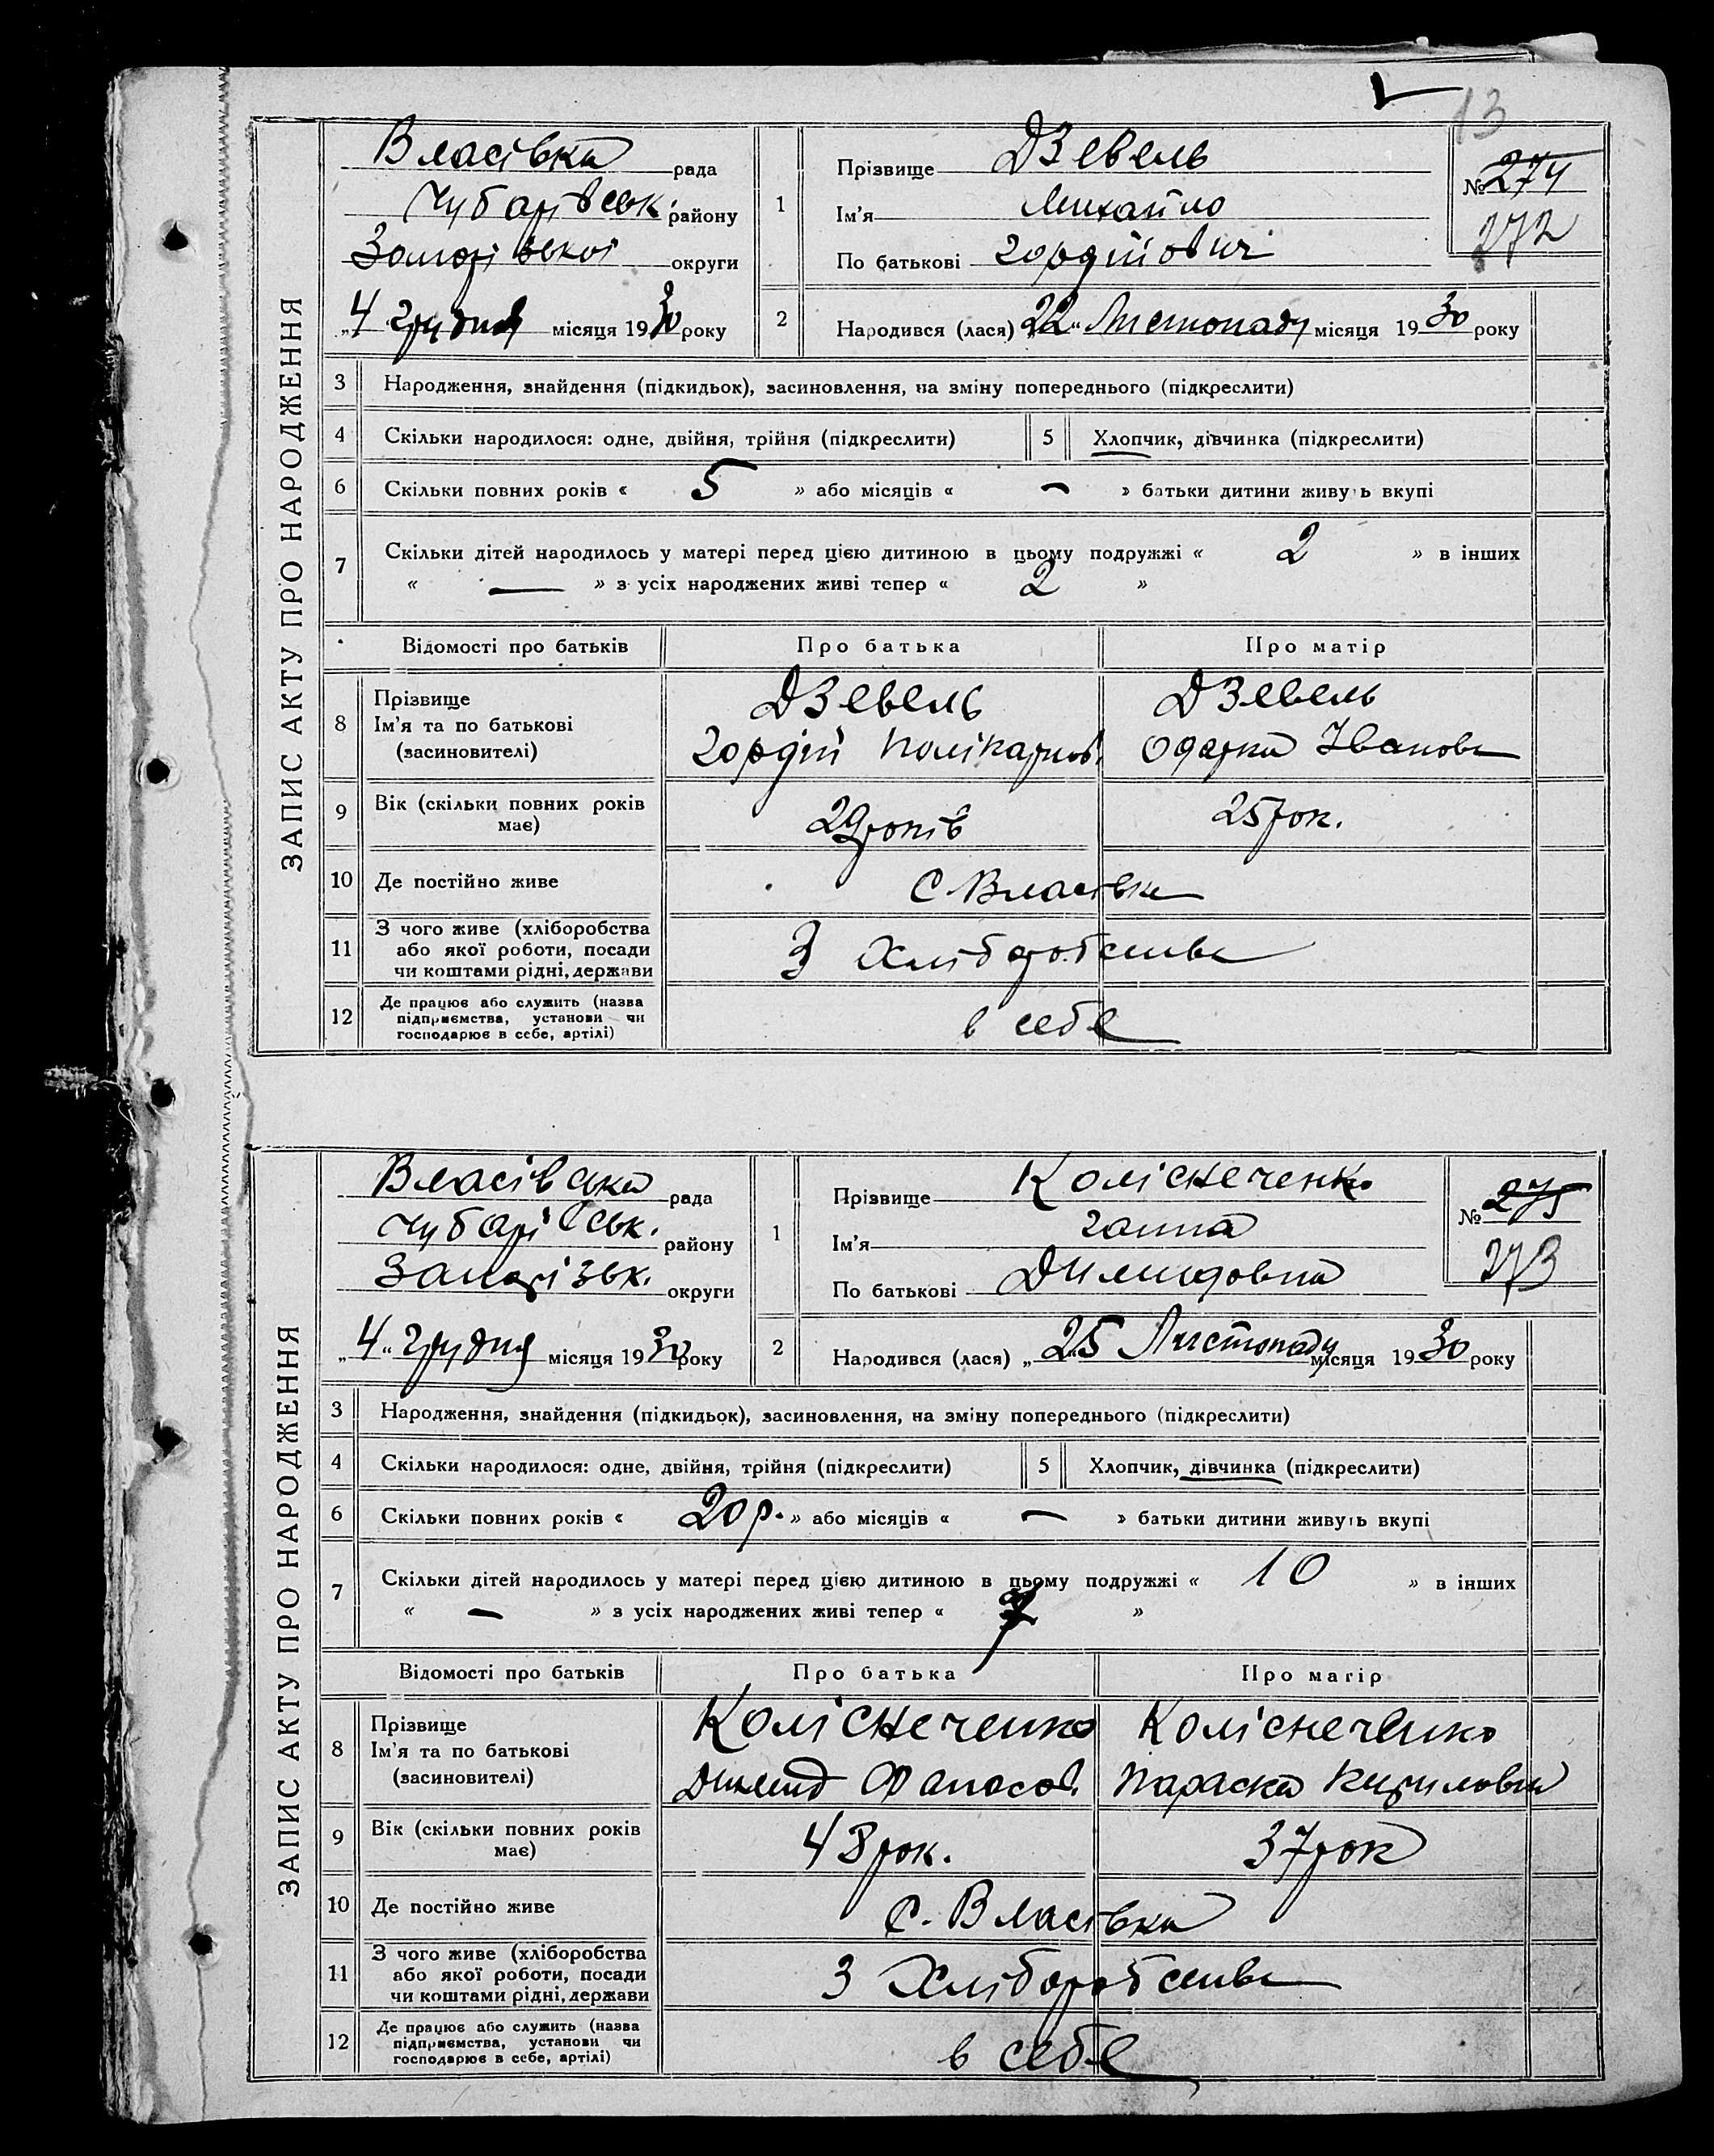 13
ЗАПИС АКТУ ПРО НАРОДЖЕННЯ
Власівка рада
Чубарівськ. району
округи
„4 грудня місяця 1930 року
1
Прізвище Дзевель
Ім'я Михайло
По батькові Гордійович
№ 274
272
2
Народився (лася) „22" Листопаду місяця 1930 року
3 Народження, знайдення (підкидьок), засиновлення, на зміну попереднього (підкреслити)
4 Скільки народилося: одне, двійня, трійня (підкреслити) 5 Хлопчик, дівчинка (підкреслити)
6 Скільки повних років « 5 » або місяців « — » батьки дитини живуть вкупі
7 Скільки дітей народилось у матері перед цією дитиною в цьому подружжі « 2 » в інших
« — » з усіх народжених живі тепер « 2 »
Відомості про батьків Про батька Про матір
8 Прізвище Дзевель Дзевель
Ім'я та по батькові Гордій Полікарпов. Одарка Іванова
(засновителі)
9 Вік (скільки повних років має) 29 років 25 рок.
10 Де постійно живе С. Власівка
11 З чого живе (хліборобства або якої роботи, посади чи коштами рідні, держави З Хліборобства
12 Де працює або служить (назва підприємства, установи чи господарює в себе, артілі) в себе
ЗАПИС АКТУ ПРО НАРОДЖЕННЯ
Власівська рада
Чубарівськ. району
Запорізьк. округи
„4" грудня місяця 1930 року
1
Прізвище Коліснеченко
Ім'я Ганна
По батькові Димидовна
№ 275
273
2
Народився (лася) „25 Листопаду місяця 1930 року
3 Народження, знайдення (підкидьок), засиновлення, на зміну попереднього (підкреслити)
4 Скільки народилося: одне, двійня, трійня (підкреслити) 5 Хлопчик, дівчинка (підкреслити)
6 Скільки повних років « 20 р. » або місяців « — » батьки дитини живуть вкупі
7 Скільки дітей народилось у матері перед цією дитиною в цьому подружжі « 10 » в інших
« — » з усіх народжених живі тепер « 7 »
Відомості про батьків Про батька Про матір
8 Прізвище Коліснеченко Коліснеченко
Ім'я та по батькові Димид Фанасов. Параска Кириловна
(засиновителі)
9 Вік (скільки повних років має) 48 рок. 37 рок
10 Де постійно живе С. Власівка
11 З чого живе (хліборобства або якої роботи, посади чи коштами рідні, держави З Хліборобства
12 Де працює або служить (назва підприємства, установи чи господарює в себе, артілі) в себе